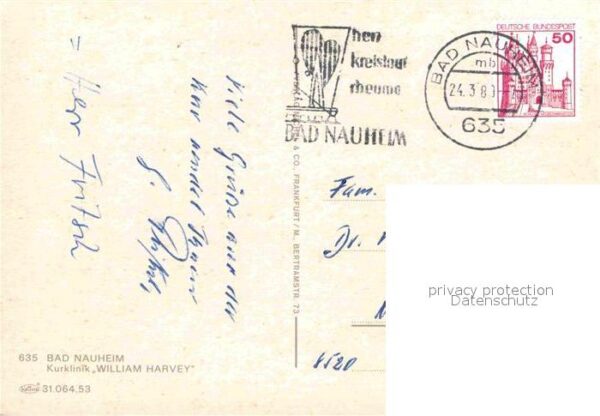 herz
kreislauf
rheuma
BAD NAUHEIM
BAD NAUHEIM
mb
24.3.80
635
DEUTSCHE BUNDESPOST
50
= Herr Fritsch
Viele Grüsse aus der
Kur sendet Ihnen
& CO., FRANKFURT/M. BERTRAMSTR. 73
Fam.
Dr.
8520
privacy protection
Datenschutz
635 BAD NAUHEIM
Kurklinik „WILLIAM HARVEY"
31.064.53